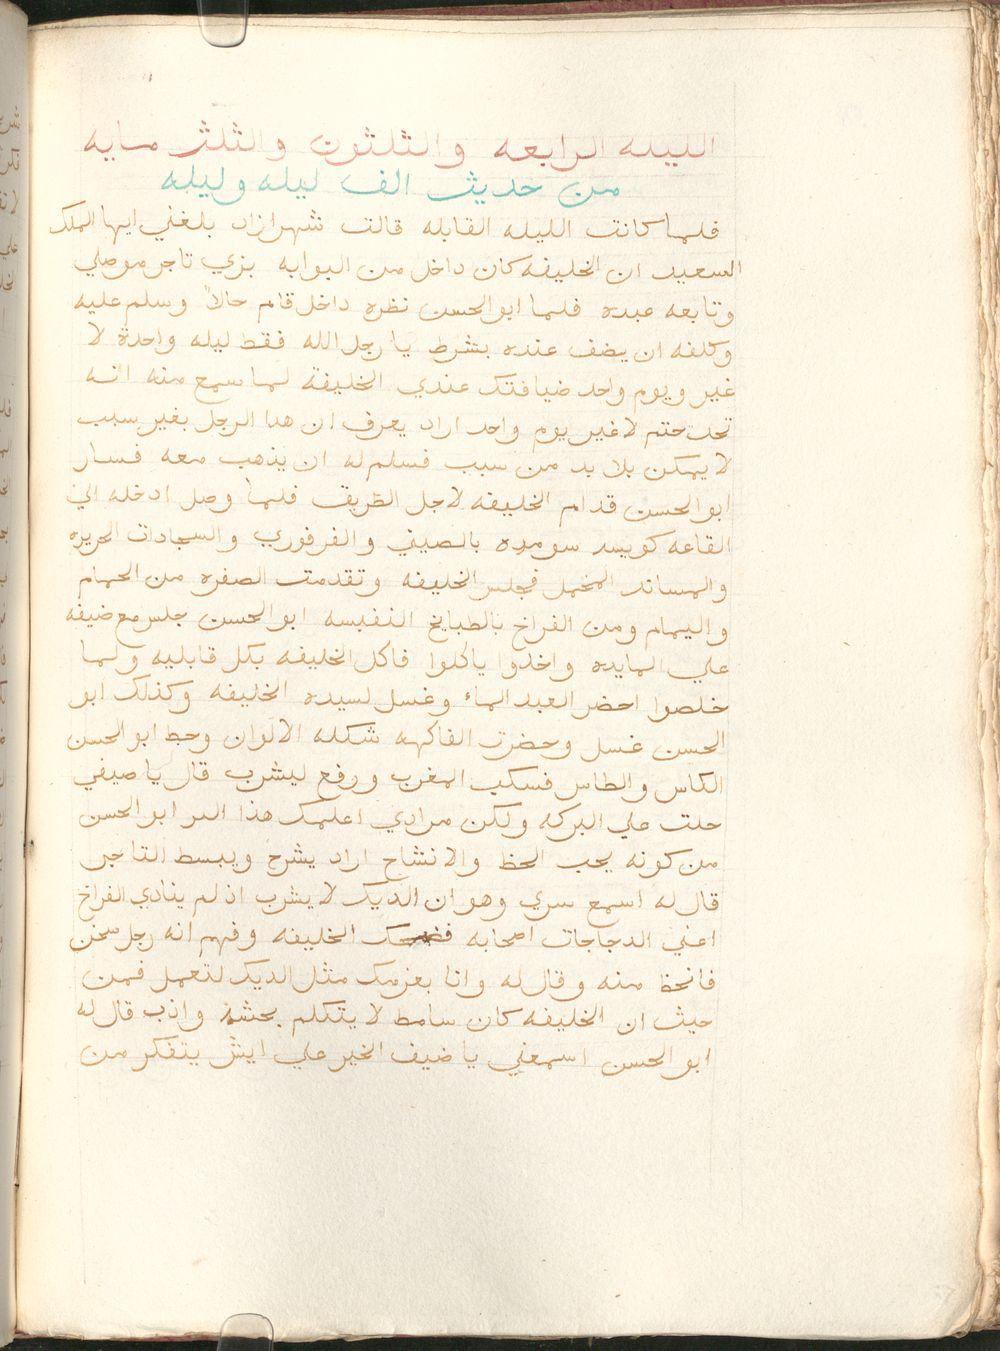 الليله الرابعه والثلثون والثلث مايه
من حديث الف ليله وليله
فلما كانت الليله القابله قالت شهرازاد بلغني ايها الملك
السعيد ان الخليفه كان داخل من البوابه بزي تاجر موصلي
وتابعه عبده فلما ابو الحسن نظره داخل قام حالاً وسلم عليه
وكلفه ان يضف عنده بشرط يا رجل الله فقط ليله واحدة لا
غير ويوم واحد ضيافتك عندي الخليفة لما سمع منه انه
تحد حتم لا غير يوم واحد اراد يعرف ان هدا الرجل بغير سبب
لا يمكن بلا بد من سبب فسلم له ان يذهب معه فسار
ابو الحسن قدام الخليفه لاجل الطريق فلما وصل ادخله الي
القاعه كويسه بالصيني والفرفوري والسجادات الحريره
والمساند المخمل فجلس الخليفه وتقدمت الصفره من الحمام
واليمام ومن الفراخ بالطبايخ النفيسه ابو الحسن جلس مع ضيفه
علي المايده واخدوا ياكلوا فاكل الخليفه بكل قابليه ولما
خلصوا احضر العبد الماء وغسل لسيده الخليفه وكذلك ابو
الحسن غسل وحضرت الفاكهه شكله الالوان وحط ابو الحسن
الكاس والطاس فسكب المغرب ورفع ليشرب قال يا صيفي
حلت علي البركه ولكن مرادي اعلمك هذا السر ابو الحسن
من كونه يحب الحظ والانشاح اراد يشرح ويبسط التاجر
قال له اسمع سري وهو ان الديك لا يشرب اذ لم ينادي الفراخ
اعني الدجاجات اصحابه فضحك الخليفه وفهم انه رجل سخن
فانحظ منه وقال له وانا بعزمك مثل الديك لتعمل فمن
حيث ان الخليفه كان سامط لا يتكلم بحشمة واذب قال له
ابو الحسن اسمعني يا ضيف الخير علي ايش يتفكر من